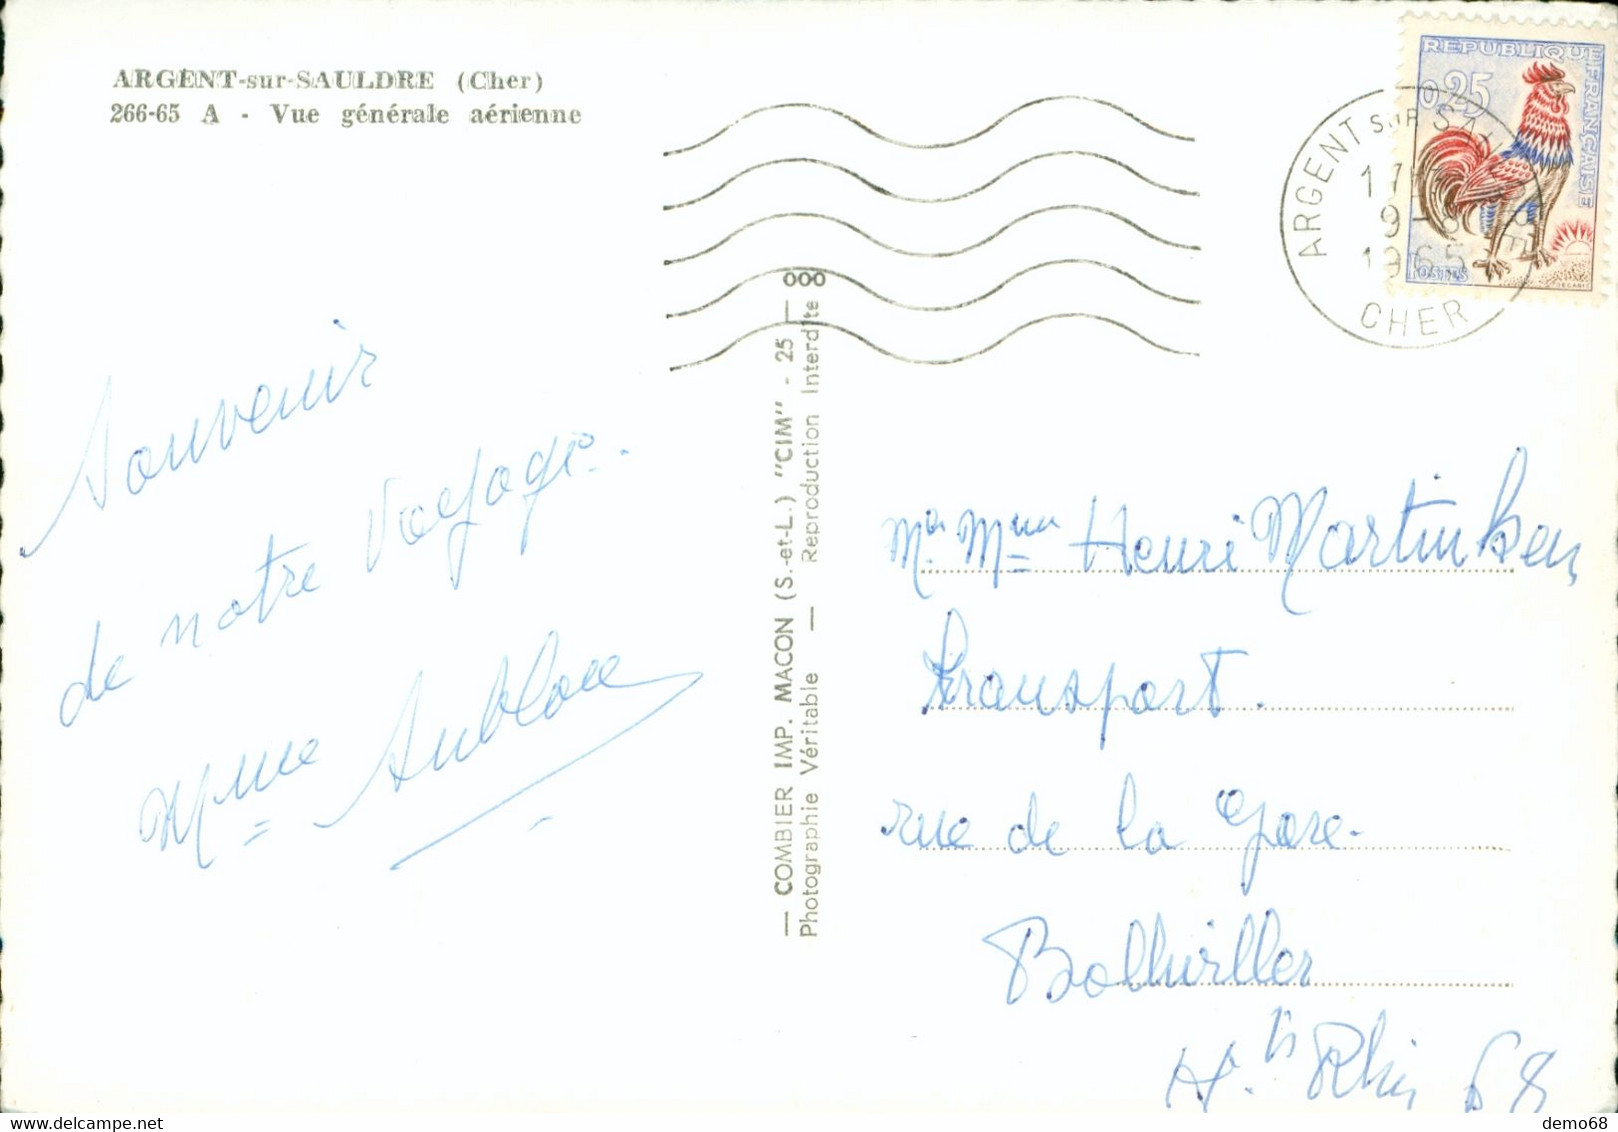 ARGENT-sur-SAULDRE (Cher)
266-65 A - Vue générale aérienne
REPUBLIQUE FRANÇAISE
0,25
POSTES
DECARIS
ARGENT SUR SAULDRE
17
9-8
1965
CHER
Souvenir
de notre voyage.
Mme
— COMBIER IMP. MACON (S.-et-L.) "CIM" - 25 — 000
Photographie Véritable — Reproduction Interdite
Mr Mme Henri Martinken
transport.
rue de la gare.
Bollwiller
Ht Rhin 68
demo68